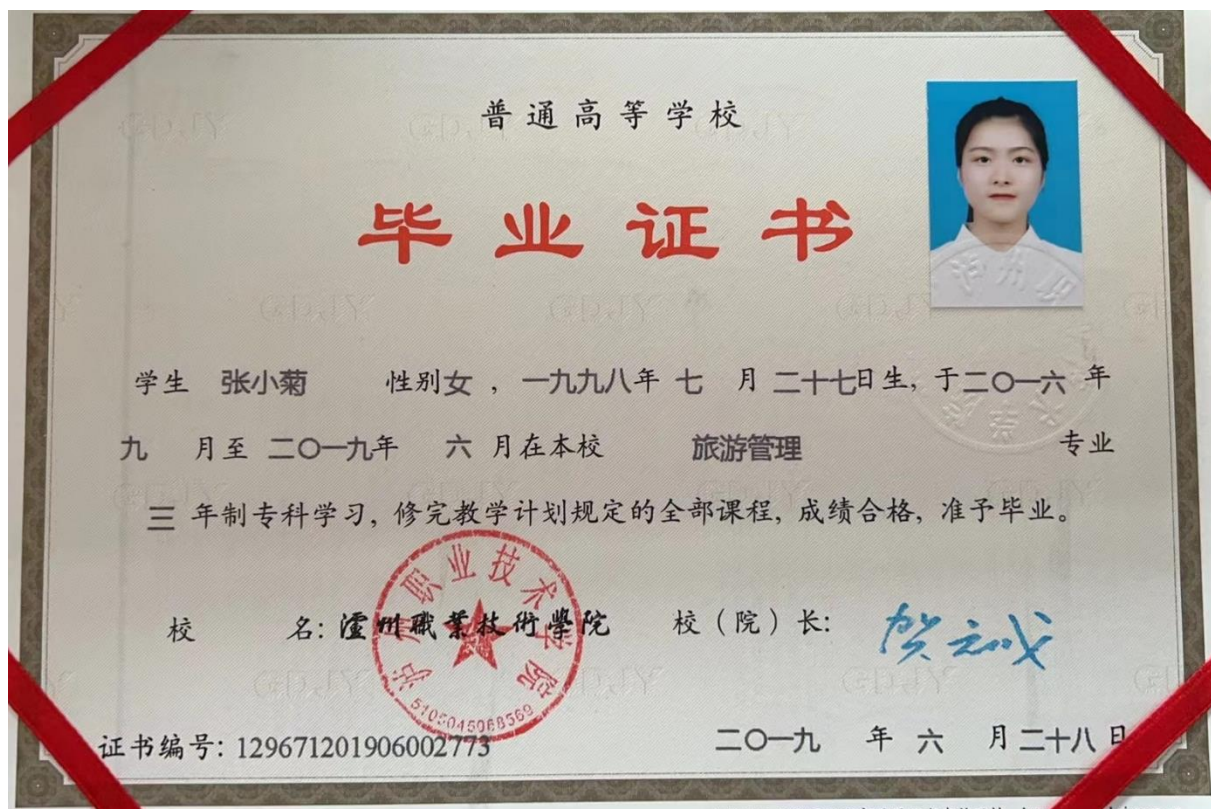 普通高等学校
毕业证书
学生 张小菊 性别女，一九九八年 七 月 二十七日生，于二〇一六 年
九 月至 二〇一九年 六 月在本校 旅游管理 专业
三 年制专科学习，修完教学计划规定的全部课程，成绩合格，准予毕业。
校 名：瀘州職業技術學院 校（院）长：贺元成
泸州职业技术学院
证书编号：129671201906002773
二〇一九 年 六 月二十八日
GDJY
泸州职